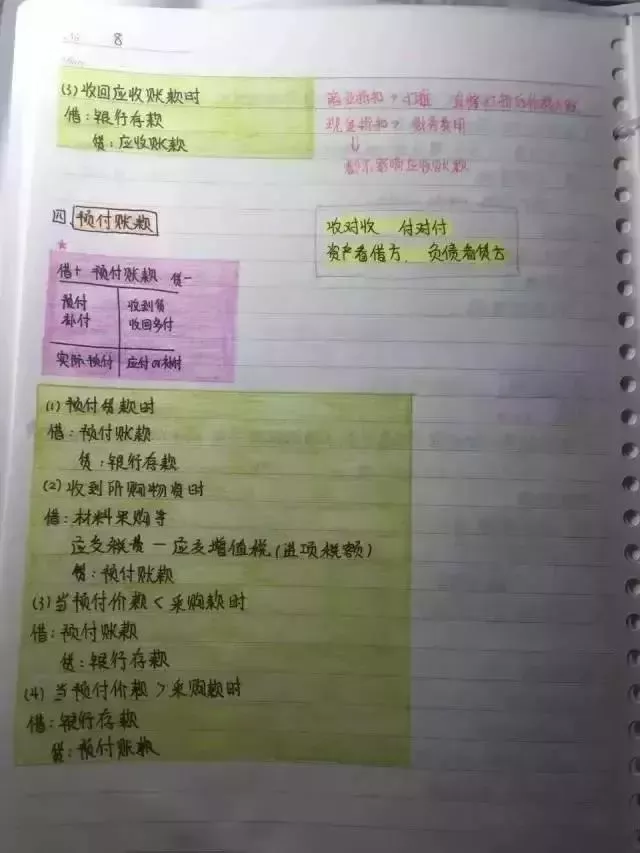 No 8
(3) 收回应收账款时
借：银行存款
贷：应收账款
商业折扣 > 打折 直接
现金折扣 > 财务费用
↓
都不影响应收账款
四、预付账款
收对收 付对付
资产者借方、负债者贷方
★
借+ 预付账款 贷-
预付 收到货
补付 收回多付
实际预付 应付or补付
(1) 预付货款时
借：预付账款
贷：银行存款
(2) 收到所购物资时
借：材料采购等
应交税费一应交增值税(进项税额)
贷：预付账款
(3) 当预付价款 < 采购款时
借：预付账款
贷：银行存款
(4) 当预付价款 > 采购款时
借：银行存款
贷：预付账款